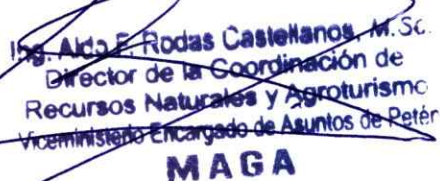 Ing. Aldo F. Rodas Castellanos, M.Sc.
Director de la Coordinación de
Recursos Naturales y Agroturismo
Viceministerio Encargado de Asuntos de Petén
MAGA